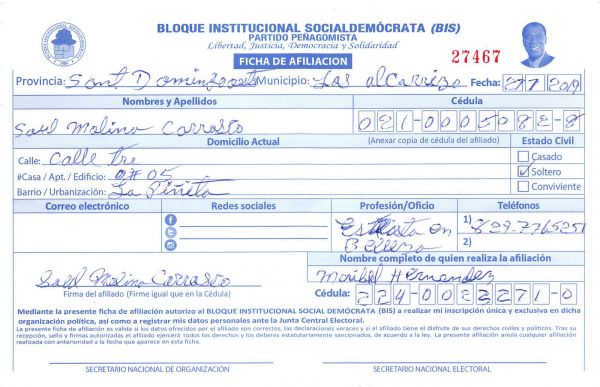 BLOQUE INSTITUCIONAL SOCIALDEMÓCRATA (BIS)
PARTIDO PEÑAGOMISTA
Libertad, Justicia, Democracia y Solidaridad
FICHA DE AFILIACION
27467
Provincia: Sant Domingo Municipio: Los alCarrizo Fecha: 27 7 2019
Nombres y Apellidos Cédula
Saul Molina Carrasto 021-0005082-8
Domicilio Actual (Anexar copia de cédula del afiliado) Estado Civil
Calle: Calle tre Casado
#Casa / Apt. / Edificio: 0# 05 Soltero
Barrio / Urbanización: La Piñeta Conviviente
Correo electrónico Redes sociales Profesión/Oficio Teléfonos
Estilista en Belleza 1) 829-7765251
2)
Nombre completo de quien realiza la afiliación
Saul Molina Carrasto Maribel Hernandez
Firma del afiliado (Firme igual que en la Cédula) Cédula: 224-0033271-0
Mediante la presente ficha de afiliación autorizo al BLOQUE INSTITUCIONAL SOCIAL DEMÓCRATA (BIS) a realizar mi inscripción única y exclusiva en dicha
organización política, así como a registrar mis datos personales ante la Junta Central Electoral.
La presente ficha de afiliación es válida si los datos ofrecidos por el afiliado son correctos, las declaraciones veraces y si el afiliado tiene el disfrute de sus derechos civiles y políticos. Tras su
recepción, sello y firmas autorizadas el afiliado ejercerá todos los derechos y los deberes estatutariamente sancionados, de acuerdo a la ley. La presente afiliación anula cualquier afiliación
realizada con anterioridad a la fecha que aparece en esta ficha.
SECRETARIO NACIONAL DE ORGANIZACIÓN SECRETARIO NACIONAL ELECTORAL